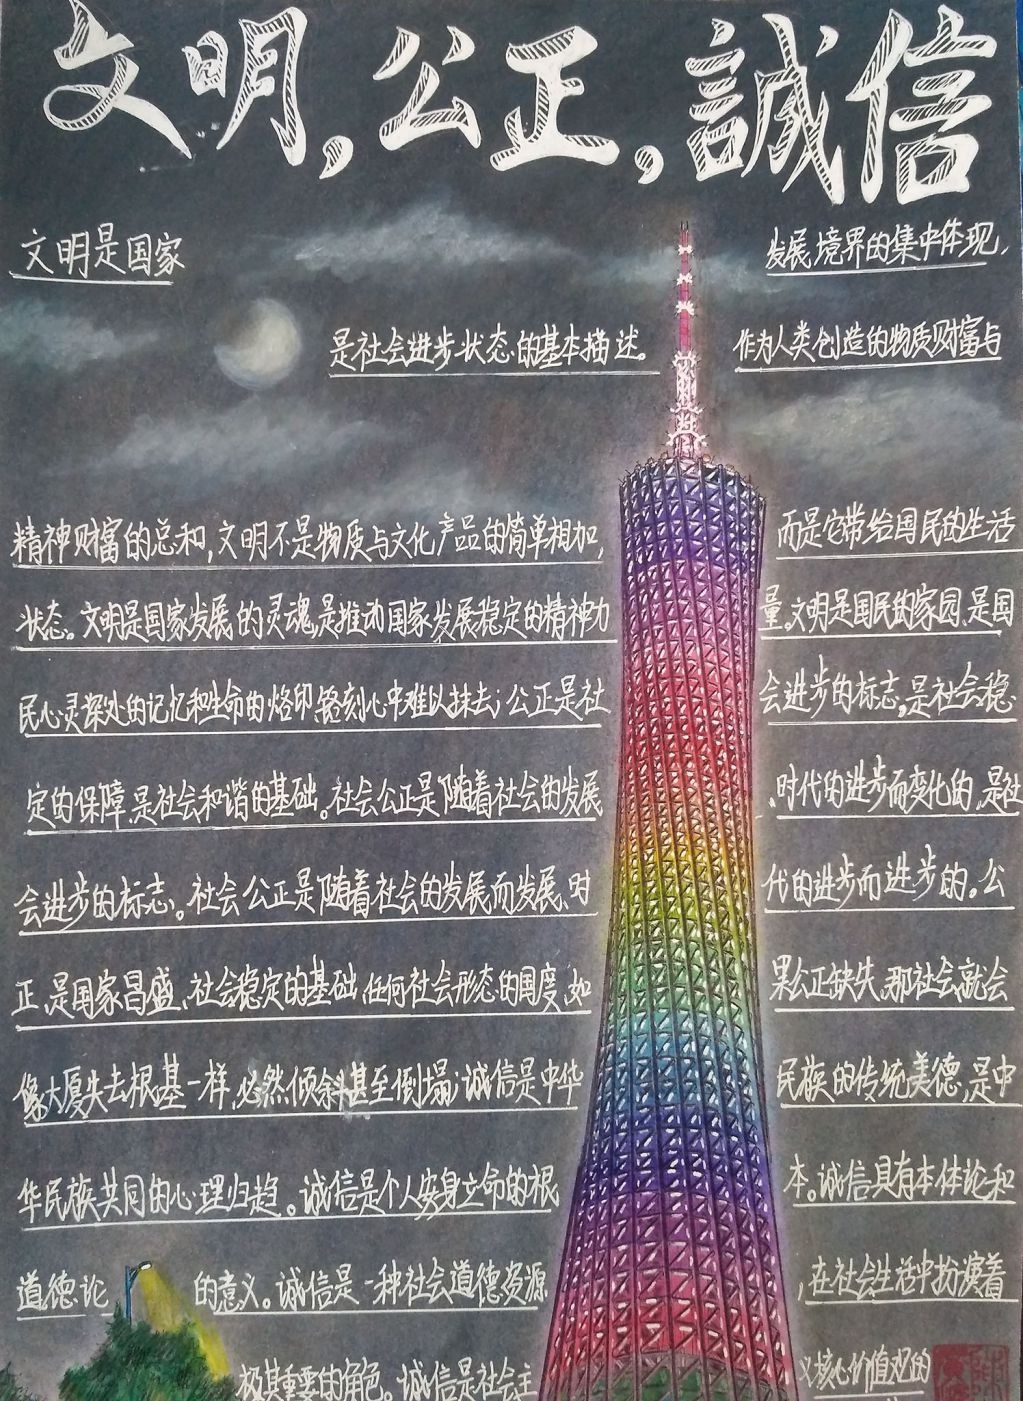 文明，公正，誠信
文明是国家 发展、境界的集中体现，
是社会进步状态的基本描述。 作为人类创造的物质财富与
精神财富的总和，文明不是物质与文化产品的简单相加， 而是它带给国民的生活
状态。文明是国家发展的灵魂，是推动国家发展稳定的精神力 量。文明是国民的家园、是国
民心灵深处的记忆和生命的烙印，铭刻心中难以抹去；公正是社 会进步的标志，是社会稳
定的保障，是社会和谐的基础。社会公正是随着社会的发展 、时代的进步而变化的，是社
会进步的标志。社会公正是随着社会的发展而发展、时 代的进步而进步的。公
正，是国家昌盛、社会稳定的基础，任何社会形态的国度，如 果公正缺失，那社会就会
像大厦失去根基一样，必然倾斜甚至倒塌；诚信是中华 民族的传统美德，是中
华民族共同的心理归趋。诚信是个人安身立命的根 本。诚信具有本体论和
道德论 的意义。诚信是一种社会道德资源 ，在社会生活中扮演着
极其重要的角色。诚信是社会主 义核心价值观的